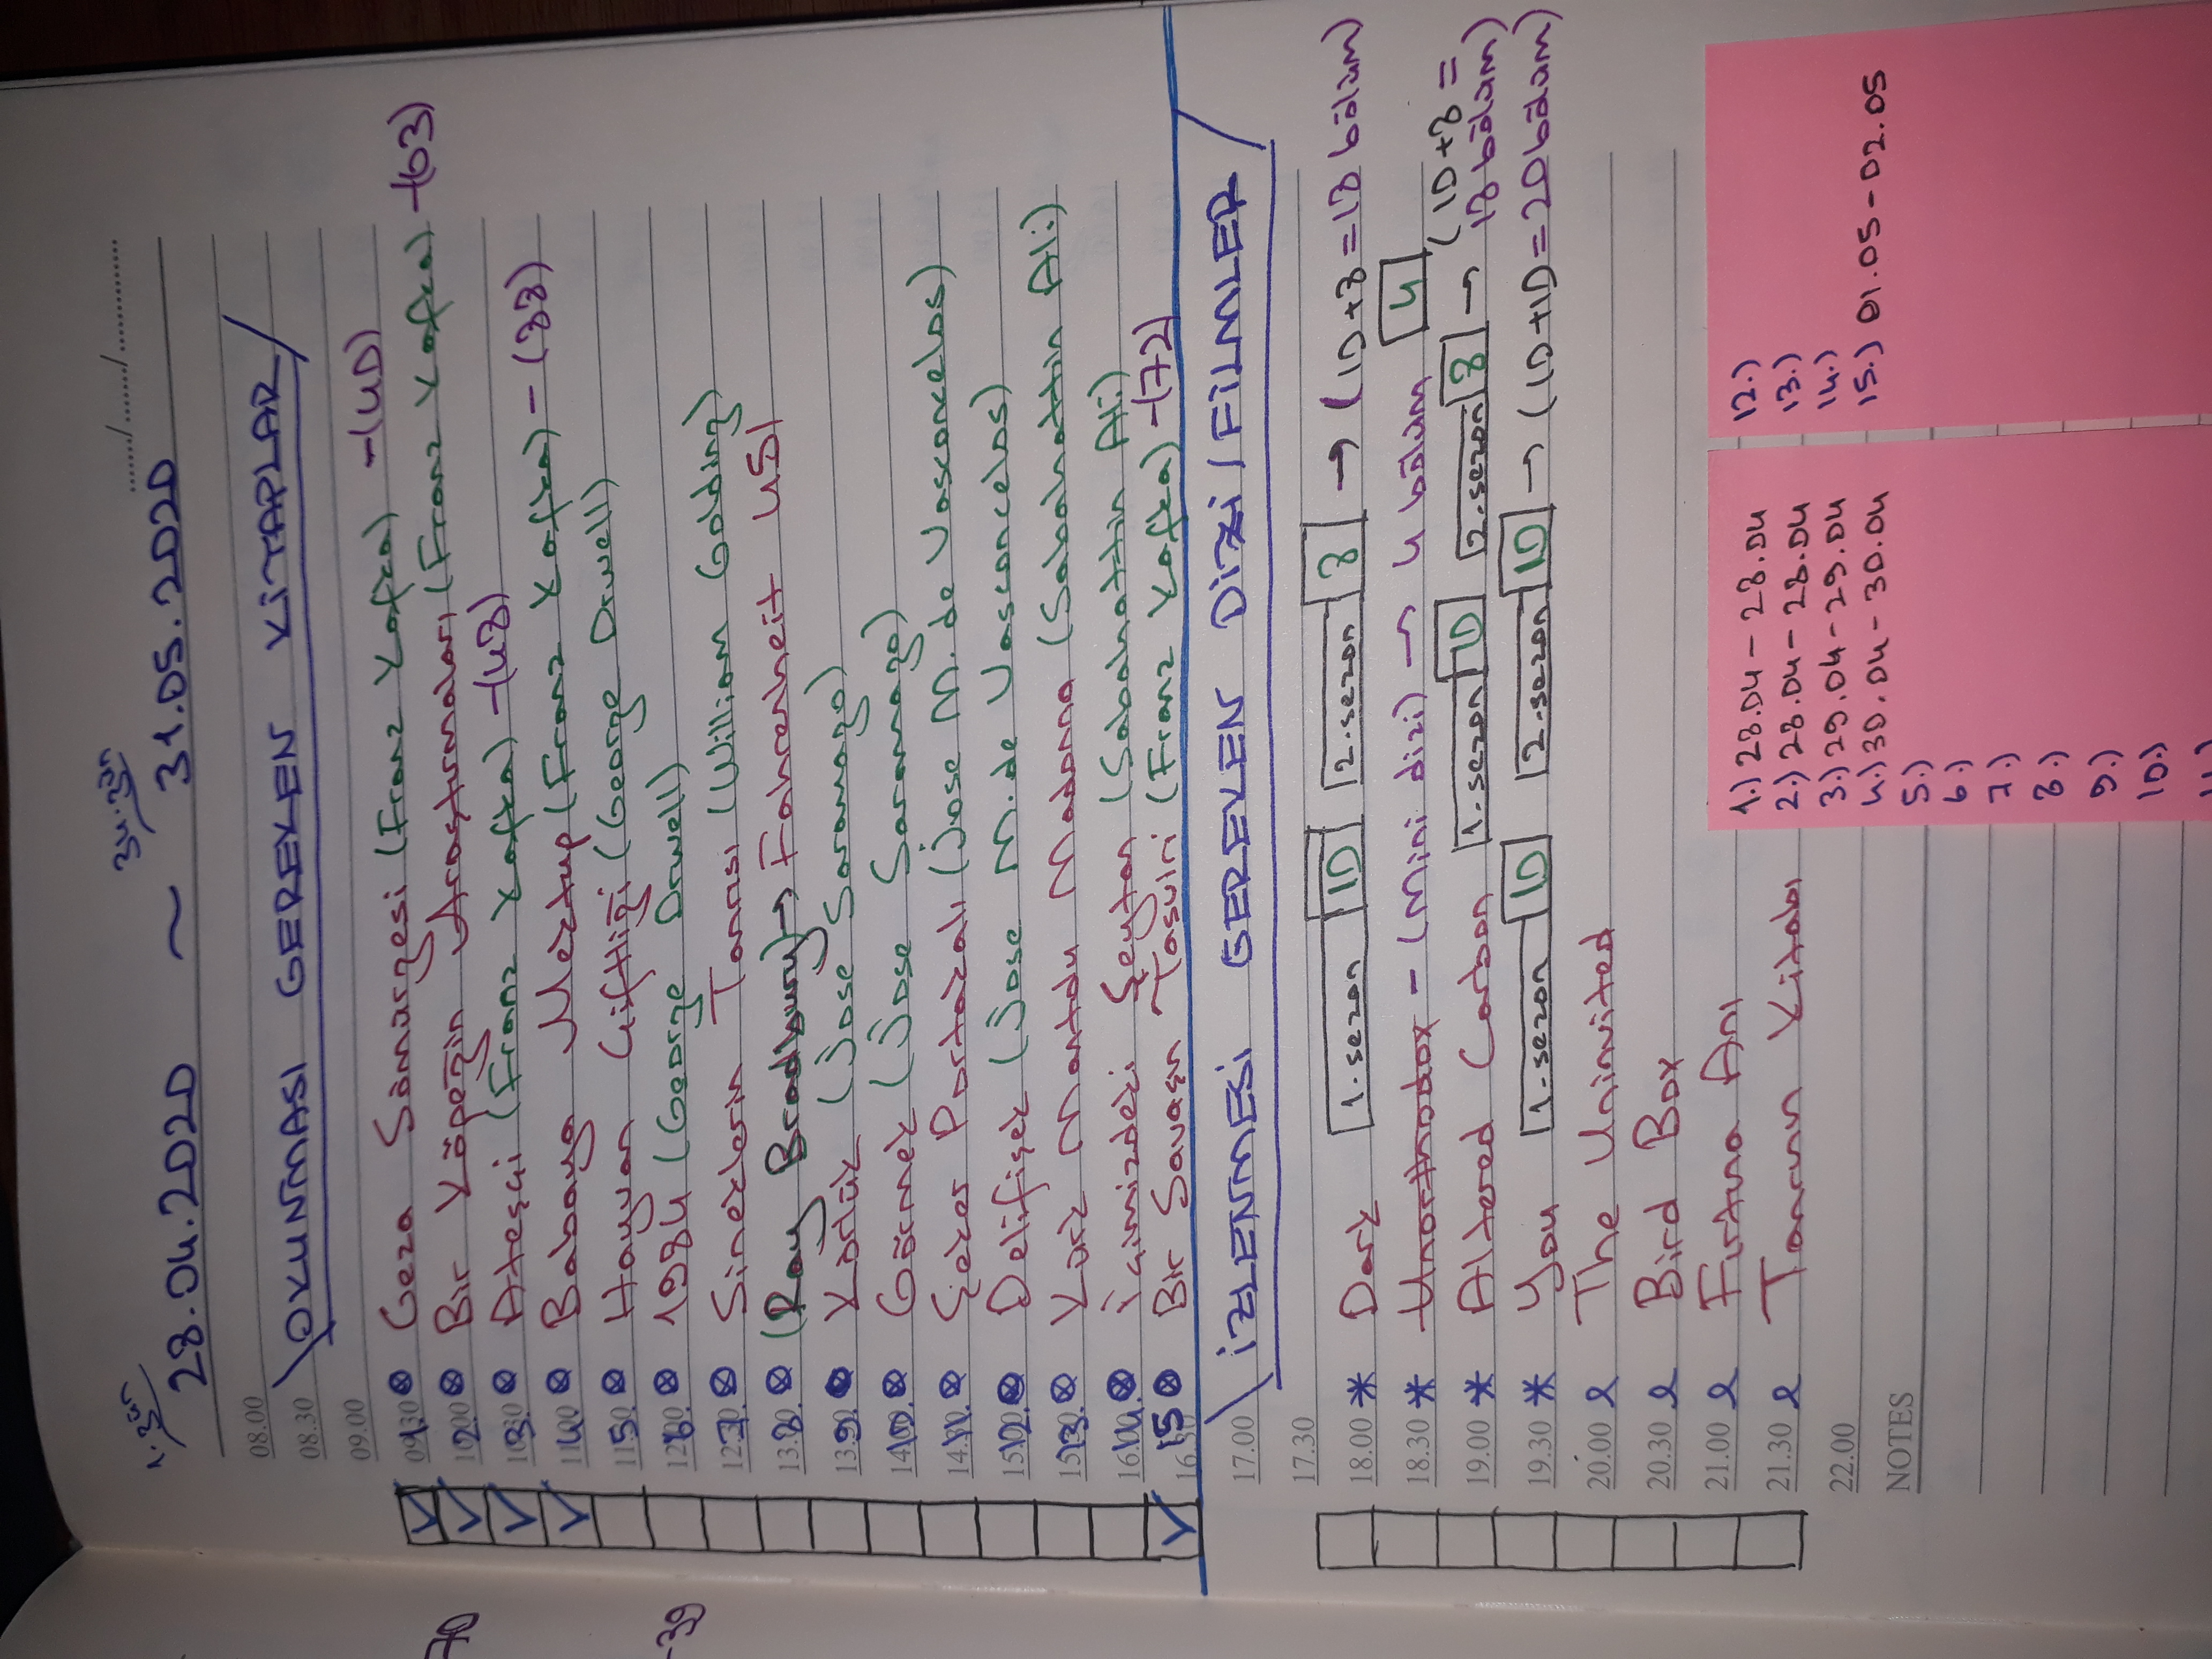 70
-39
1. gün
34. gün
....../....../...............
28.04.2020 ~ 31.05.2020
08.00
08.30 \OKUNMASI GEREKEN KİTAPLAR/
09.00
09.30 1. ⊗ Ceza Sömürgesi (Franz Kafka) -(40)
10.00 2. ⊗ Bir Köpeğin Araştırmaları (Franz Kafka) -(63)
10.30 3. ⊗ Ateşçi (Franz Kafka) -(48)
11.00 4. ⊗ Babaya Mektup (Franz Kafka) - (88)
11.30 5. ⊗ Hayvan Çiftliği (George Orwell)
12.00 6. ⊗ 1984 (George Orwell)
12.30 7. ⊗ Sineklerin Tanrısı (William Golding)
13.00 8. ⊗ (Ray Bradbury) → Fahrenheit 451
13.30 9. ⊗ Körlük (Jose Saramago)
14.00 10. ⊗ Görmek (Jose Saramago)
14.30 11. ⊗ Şeker Portakalı (Jose M. de Vasconcelos)
15.00 12. ⊗ Delifişek (Jose M. de Vasconcelos)
15.30 13. ⊗ Kürk Mantolu Madonna (Sabahattin Ali)
16.00 14. ⊗ İçimizdeki Şeytan (Sabahattin Ali)
16.30 15 ⊗ Bir Savaşın Tasviri (Franz Kafka) -(72)
17.00 \İZLENMESİ GEREKEN DİZİ/FİLMLER/
17.30
18.00 * Dark 1.sezon 10 2.sezon 8 → (10+8=18 bölüm)
18.30 * Unorthodox - (Mini dizi) → 4 bölüm 4
19.00 * Altered Carbon 1.sezon 10 2.sezon 8 → (10+8=
18 bölüm)
19.30 * You 1.sezon 10 2.sezon 10 → (10+10=20 bölüm)
20.00 The Uninvited
20.30 Bird Box
21.00 Fırtına Anı
21.30 Tanrının Kitabı
22.00
NOTES
1.) 28.04 - 28.04
2.) 28.04 - 28.04
3.) 29.04 - 29.04
4.) 30.04 - 30.04
5.)
6.)
7.)
8.)
9.)
10.)
11.)
12.)
13.)
14.)
15.) 01.05 - 02.05